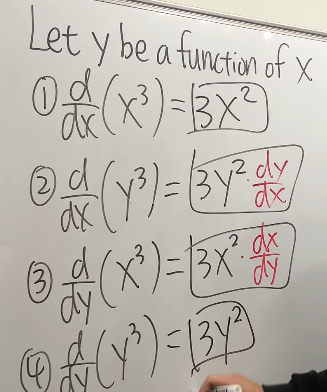 Let y be a function of x
① d/dx (x³) = 3x²
② d/dx (y³) = 3y² · dy/dx
③ d/dy (x³) = 3x² · dx/dy
④ d/dy (y³) = 3y²